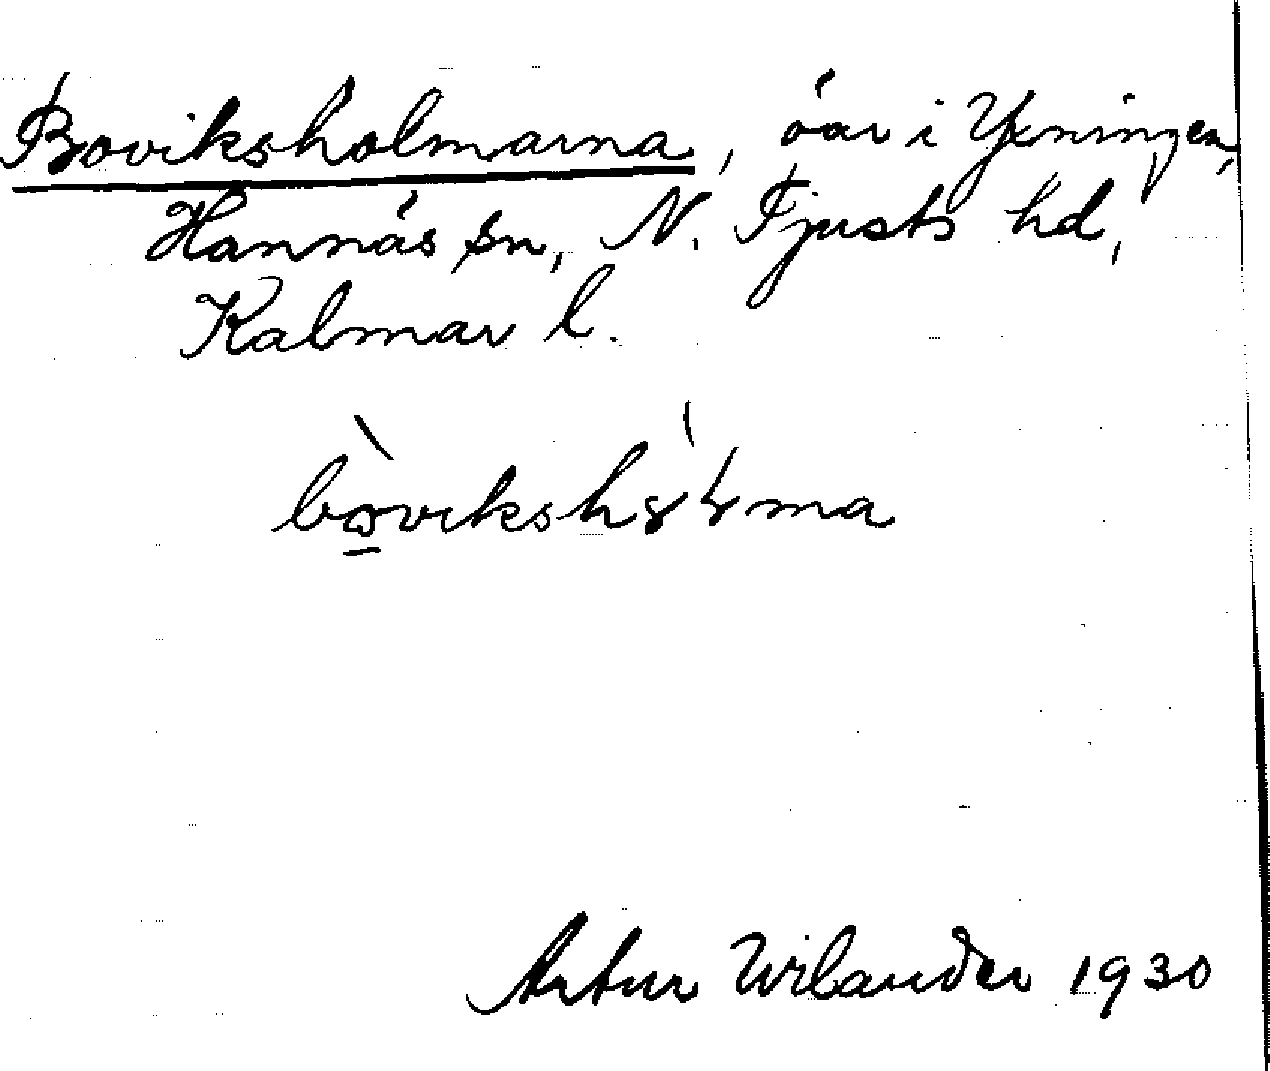 Boviksholmarna, öar i Yxningen,
Hannäs sn, N. Tjusts hd,
Kalmar l.
Artur Wilander 1930